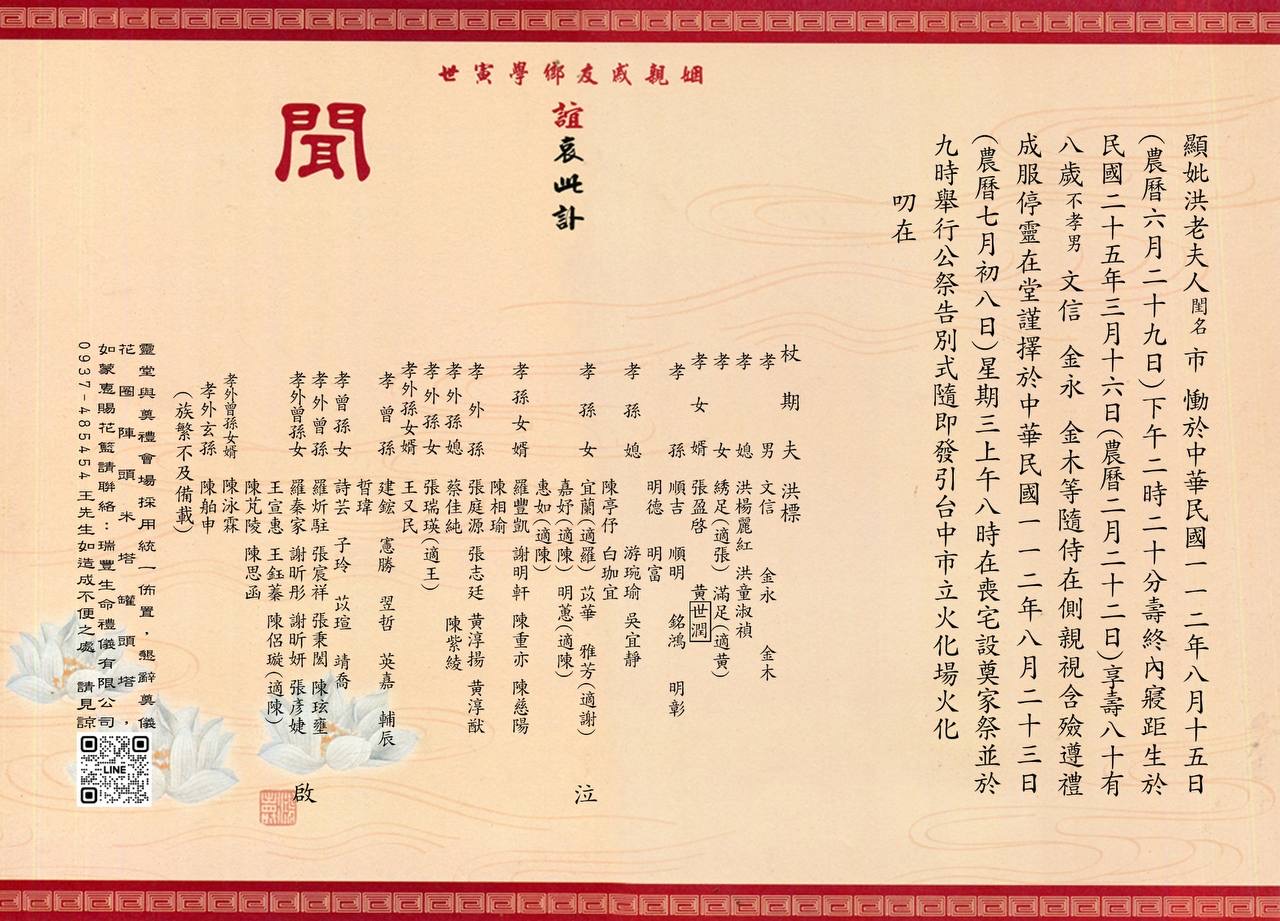 顯妣洪老夫人閨名市 慟於中華民國一一二年八月十五日
(農曆六月二十九日)下午二時二十分壽終內寢距生於
民國二十五年三月十六日(農曆二月二十二日)享壽八十有
八歲不孝男 文信 金永 金木等隨侍在側親視含殮遵禮
成服停靈在堂謹擇於中華民國一一二年八月二十三日
(農曆七月初八日)星期三上午八時在喪宅設奠家祭並於
九時舉行公祭告別式隨即發引台中市立火化場火化
叨在
世寅學鄉友戚親姻
誼哀此訃
聞
杖期夫 洪標
孝男 文信 金永 金木
孝媳 洪楊麗紅 洪童淑禎
孝女 綉足(適張) 滿足(適黃)
孝女婿 張盈啓 黃世潤
孝孫 順吉 順明 銘鴻 明彰
明德 明富
孝孫媳 游琬瑜 吳宜靜
陳亭伃 白珈宜
孝孫女 宜蘭(適羅) 苡華 雅芳(適謝)
嘉妤(適陳) 明蕙(適陳)
惠如(適陳)
孝孫女婿 羅豐凱 謝明軒 陳重亦 陳慈陽
陳相瑜
孝外孫 張庭源 張志廷 黃淳揚 黃淳猷
孝外孫媳 蔡佳純 陳紫綾
孝外孫女 張瑞瑛(適王)
孝外孫女婿 王又民
孝曾孫 建鋐 憲勝 翌哲 英嘉 輔辰
哲瑋
孝曾孫女 詩芸 子玲 苡瑄 靖喬
孝外曾孫 羅炘駐 張宸祥 張秉閎 陳玹壅
孝外曾孫女 羅秦家 謝昕彤 謝昕妍 張彥婕
王宣惠 王鈺蓁 陳侶璇(適陳)
陳芃陵 陳思函
孝外曾孫女婿 陳泳霖
孝外玄孫 陳舶申
(族繁不及備載)
泣
啟
靈堂與奠禮會場採用統一佈置,懇辭奠儀
花圈陣頭米塔罐頭塔,
如蒙惠賜花籃請聯絡:瑞豐生命禮儀有限公司
0937-485454王先生如造成不便之處 請見諒
LINE